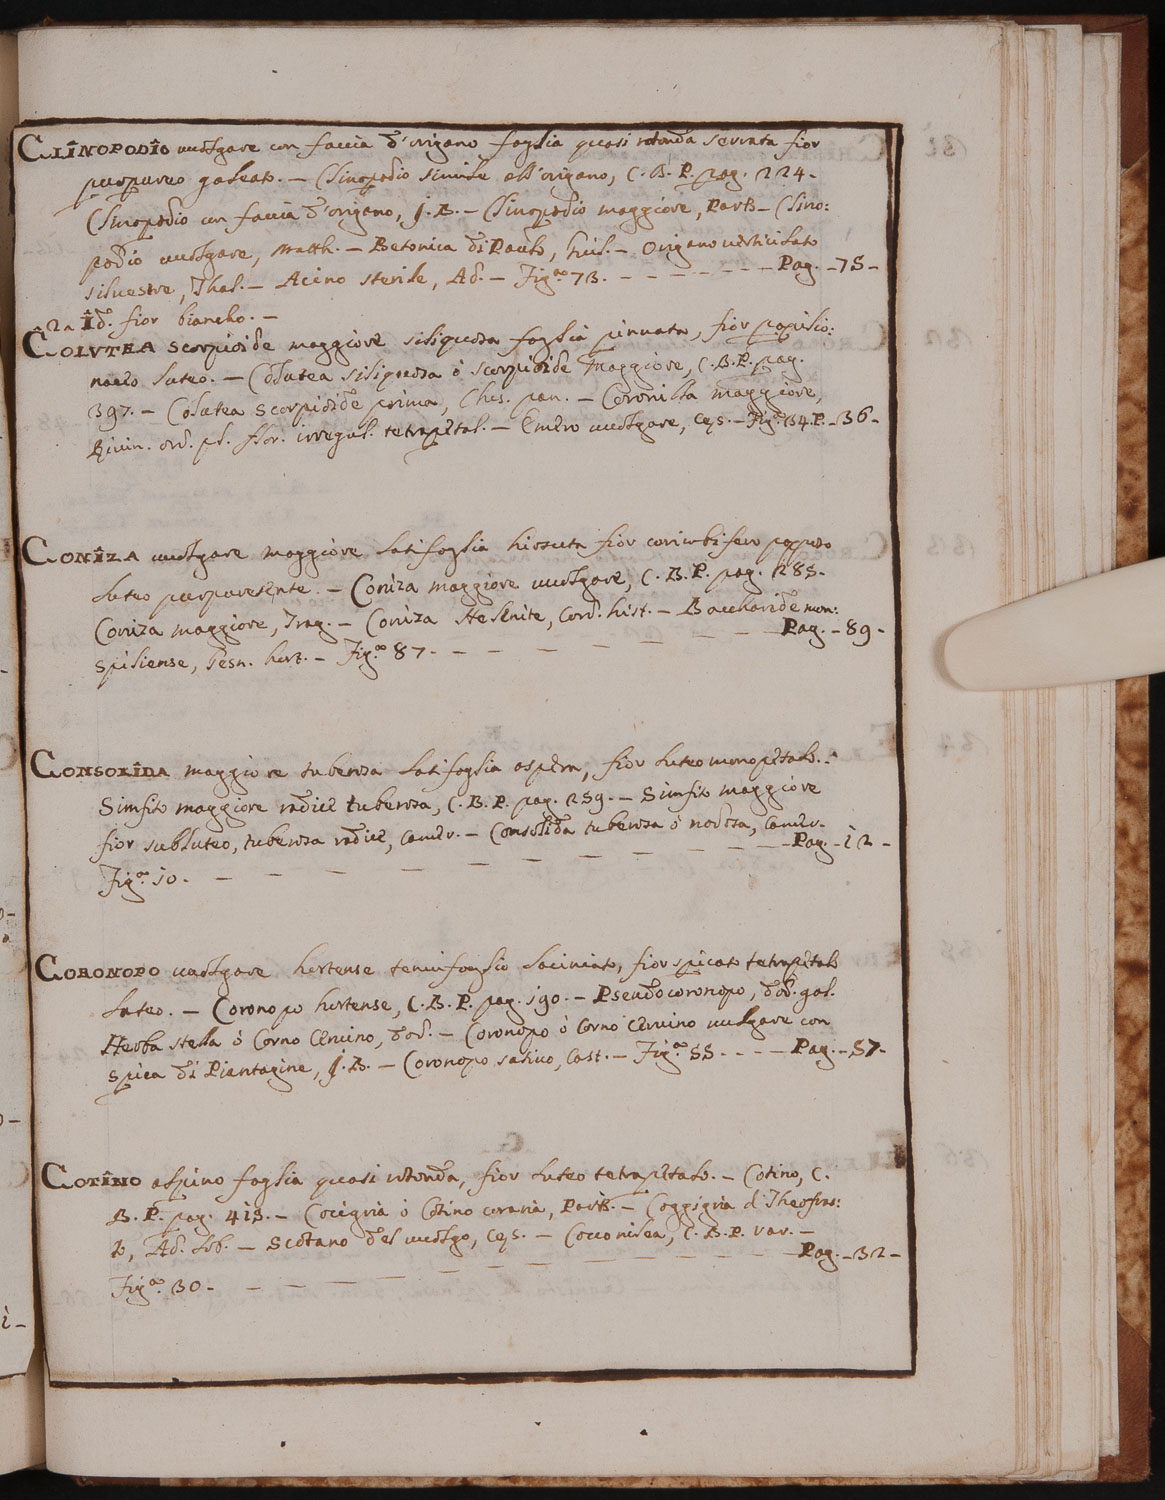 CLINOPODIO uulgare con faccia d'origano foglia quasi rotonda serrata fior
purpureo galeato. — Clinopodio simile all'origano, C. B. P. pag. 224.
Clinopodio con faccia d'origano, J. B. — Clinopodio maggiore, Park — Clino:
podio uulgare, Matth. — Betonica di Paulo, Guil. — Origano uerticilato
siluestre, Thal. — Acino sterile, Ad. — Fig.ª 73. — — — — — — — Pag. — 75 —
2a Id. fior biancho. —
COLUTEA scorpioide maggiore siliquosa foglia pinnata, fior papilio:
naceo luteo. — Colutea siliquosa ò scorpioide maggiore, C. B. P. pag.
397. — Colutea scorpioide prima, Clus. pan. — Coronilla maggiore,
Riuin. ord. pl. flor. irregul. tetrapetal. — Emero uulgare, Ces. — Fig.ª 34. P. — 36 —
CONIZA uulgare maggiore latifoglia hirsuta fior corimbifero papposo
luteo purpurescente. — Coniza maggiore uulgare, C. B. P. pag. 265.
Coniza maggiore, Trag. — Coniza Helenite, Cord. hist. — Baccharide mon:
spiliense, Gesn. hort. — Fig.ª 87 — — — — — — — — Pag. — 89 —
CONSOLIDA maggiore tuberosa latifoglia aspera, fior luteo monopetalo. —
Simfito maggiore radice tuberosa, C. B. P. pag. 259. — Simfito maggiore
fior subluteo, tuberosa radice, Camer. — Consolida tuberosa ò nodosa, Camer.
Fig.ª 10. — — — — — — — — — — — Pag. — 12 —
CORONOPO uulgare hortense tenuifoglio laciniato, fior spicato tetrapetalo
luteo. — Coronopo hortense, C. B. P. pag. 190. — Pseudocoronopo, dod. gal.
Herba stella ò Corno Ceruino, dod. — Coronopo ò Corno Ceruino uulgare con
spica di Piantagine, J. B. — Coronopo satiuo, Cast. — Fig.ª 55 — — — — Pag. — 57 —
COTINO alpino foglia quasi rotonda, fior luteo tetrapetalo. — Cotino, C.
B. P. pag. 415. — Cocigria ò Cotino coraria, Park. — Coggigria di Theofras:
to, Ad. lob. — Scotano del uulgo, Ces. — Cocconilea, C. B. P. var. —
Fig.ª 30 — — — — — — — — — — — Pag. — 32 —